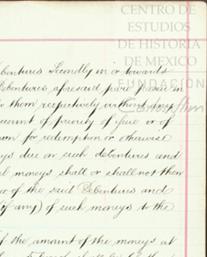 CENTRO DE
ESTUDIOS
DE HISTORIA
DE MEXICO
FUNDACIÓN
bentures Secondly in or towards
Debentures aforesaid pari passu in
to them respectively without any
count of priority of issue or of
for redemption or otherwise
ys due on such debentures and
l moneys shall or shall not then
or of the said Debentures and
(if any) of such moneys to the
of the amount of the moneys at